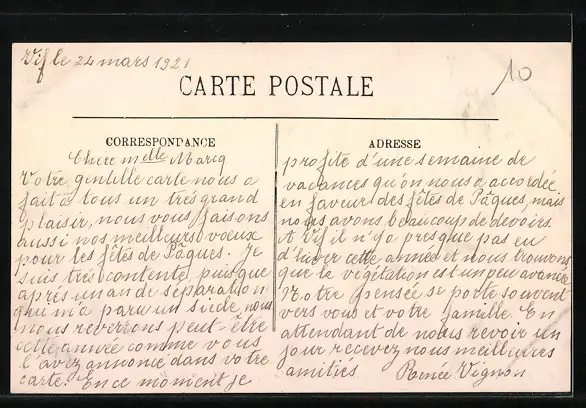 Vif le 24 mars 1921
10
CARTE POSTALE
CORRESPONDANCE
Chere melle Marcq
Votre gentille carte nous a
fait à tous un très grand
plaisir, nous vous faisons
aussi nos meilleurs voeux
pour les fêtes de Pâques. Je
suis très contente puisque
après un an de séparation
qui m'a paru un siècle, nous
nous reverrons peut-être
cette année comme vous
l'avez annoncé dans votre
carte. En ce moment je
ADRESSE
profite d'une semaine de
vacances qu'on nous a accordée
en faveur des fêtes de Pâques, mais
nous avons beaucoup de devoirs.
A Vif il n'ya presque pas eu
d'hiver cette année et nous trouvons
que la végétation est un peu avancée.
Notre pensée se porte souvent
vers vous et votre famille. En
attendant de nous revoir un
jour recevez nous meilleures
amitiés Renée Vignon